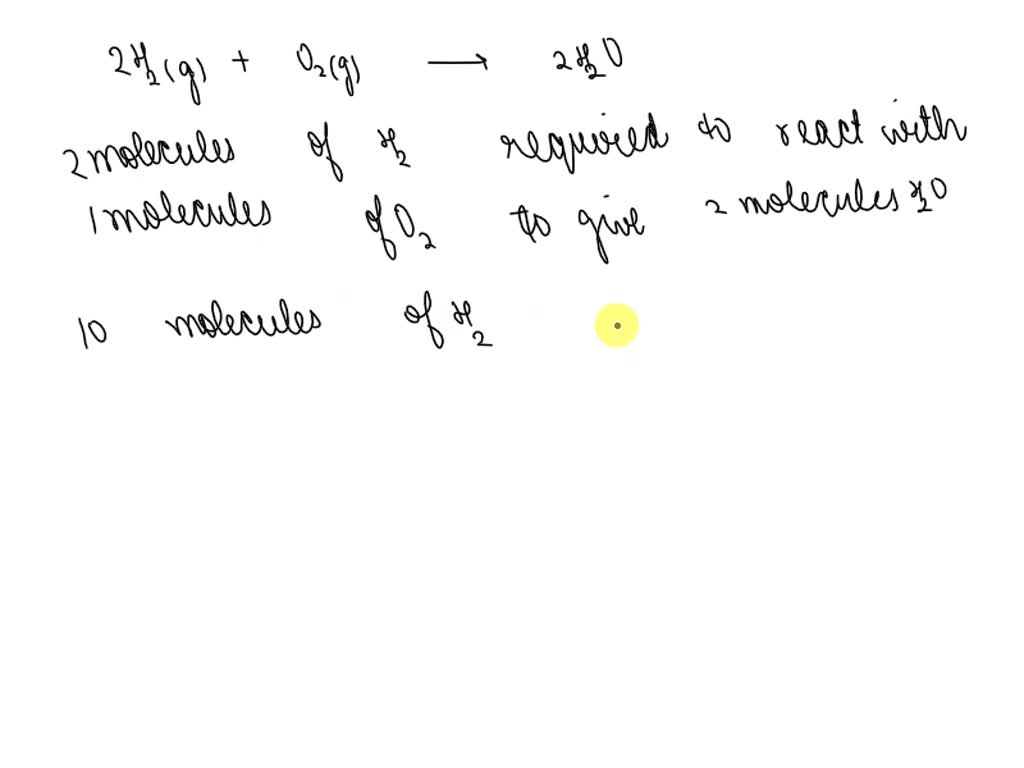 2H₂(g) + O₂(g) → 2H₂O
2 molecules of H₂ required to react with
1 molecules of O₂ to give 2 molecules H₂O
10 molecules of H₂